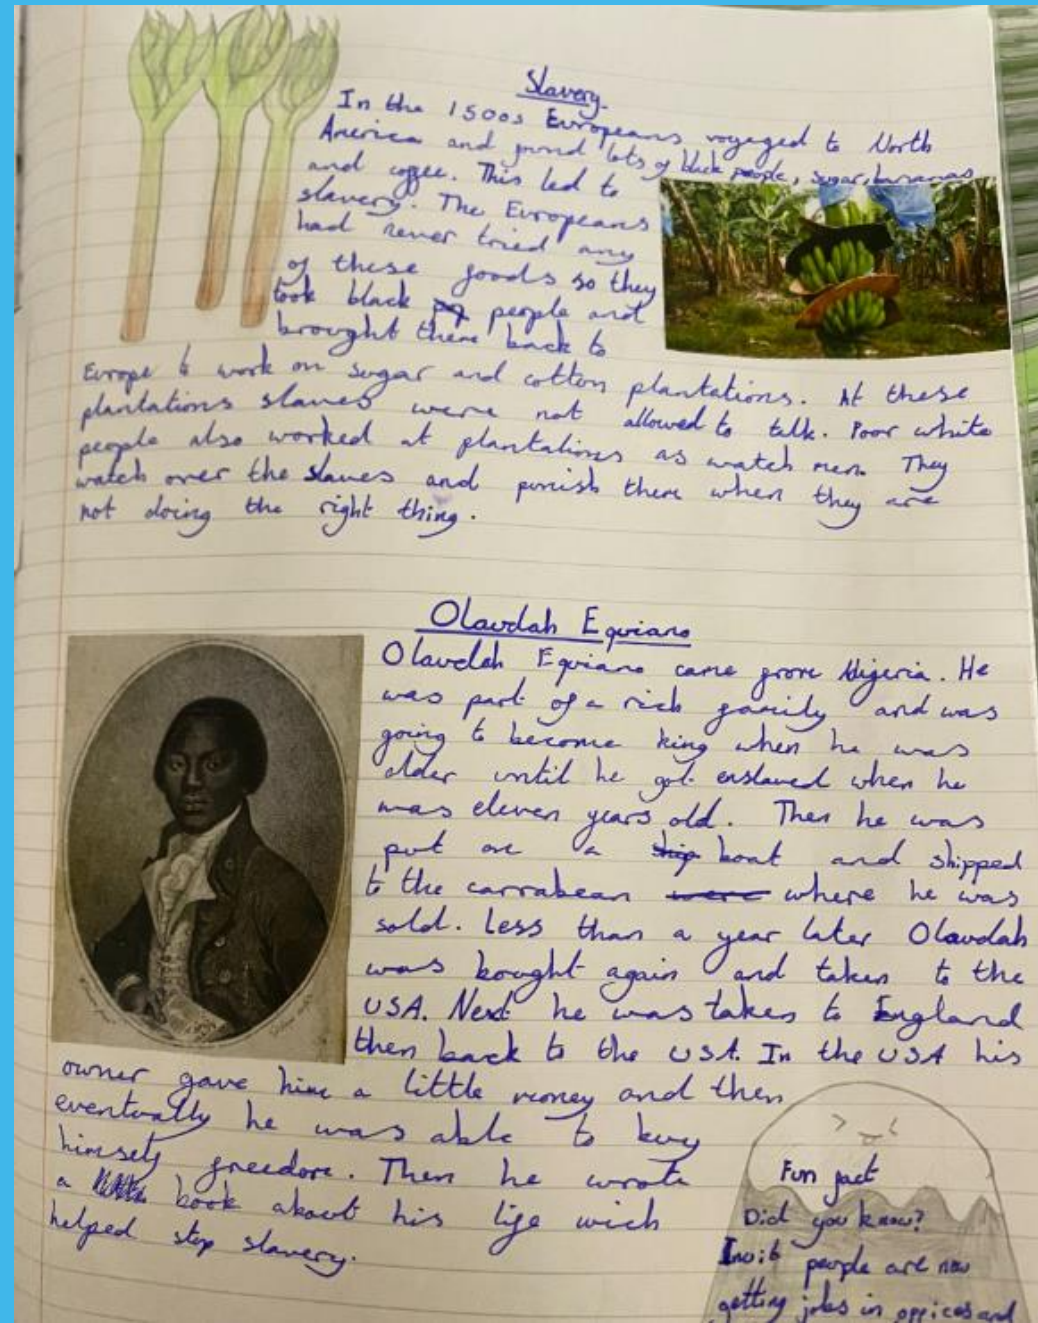 Slavery.
In the 1500s Europeans voyaged to North
America and found lots of black people, sugar, bananas
and coffee. This led to
slavery. The Europeans
had never tried any
of these foods so they
took black people and
brought them back to
Europe to work on sugar and cotton plantations. At these
plantations slaves were not allowed to talk. Poor white
people also worked at plantations as watch men. They
watch over the slaves and punish them when they are
not doing the right thing.
Olaudah Equiano
Olaudah Equiano came from Nigeria. He
was part of a rich family and was
going to become king when he was
older until he got enslaved when he
was eleven years old. Then he was
put on a ship boat and shipped
to the carrabean were where he was
sold. Less than a year later Olaudah
was bought again and taken to the
USA. Next he was taken to England
then back to the USA. In the USA his
owner gave him a little money and then
eventually he was able to buy
himself freedom. Then he wrote
a book about his life wich
helped stop slavery.
Fun fact
Did you know?
Inuit people are now
getting jobs in offices and